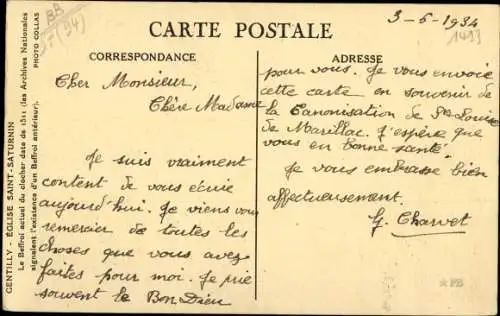 CARTE POSTALE
3-6-1934
1493
BB
(94)
CORRESPONDANCE
ADRESSE
Cher Monsieur,
Chère Madame
Je suis vraiment
content de vous écrire
aujourd'hui. Je viens vous
remercier de toutes les
choses que vous avez
faites pour moi. Je prie
souvent le Bon Dieu
pour vous. Je vous envoie
cette carte en souvenir de
la Canonisation de Ste Louise
de Marillac. J'espère que
vous en bonne santé.
Je vous embrasse bien
affectueusement.
Charvet
GENTILLY - ÉGLISE SAINT-SATURNIN
Le Beffroi actuel du clocher date de 1511 (les Archives Nationales
signalent l'existence d'un Beffroi antérieur).
PHOTO COLLAS